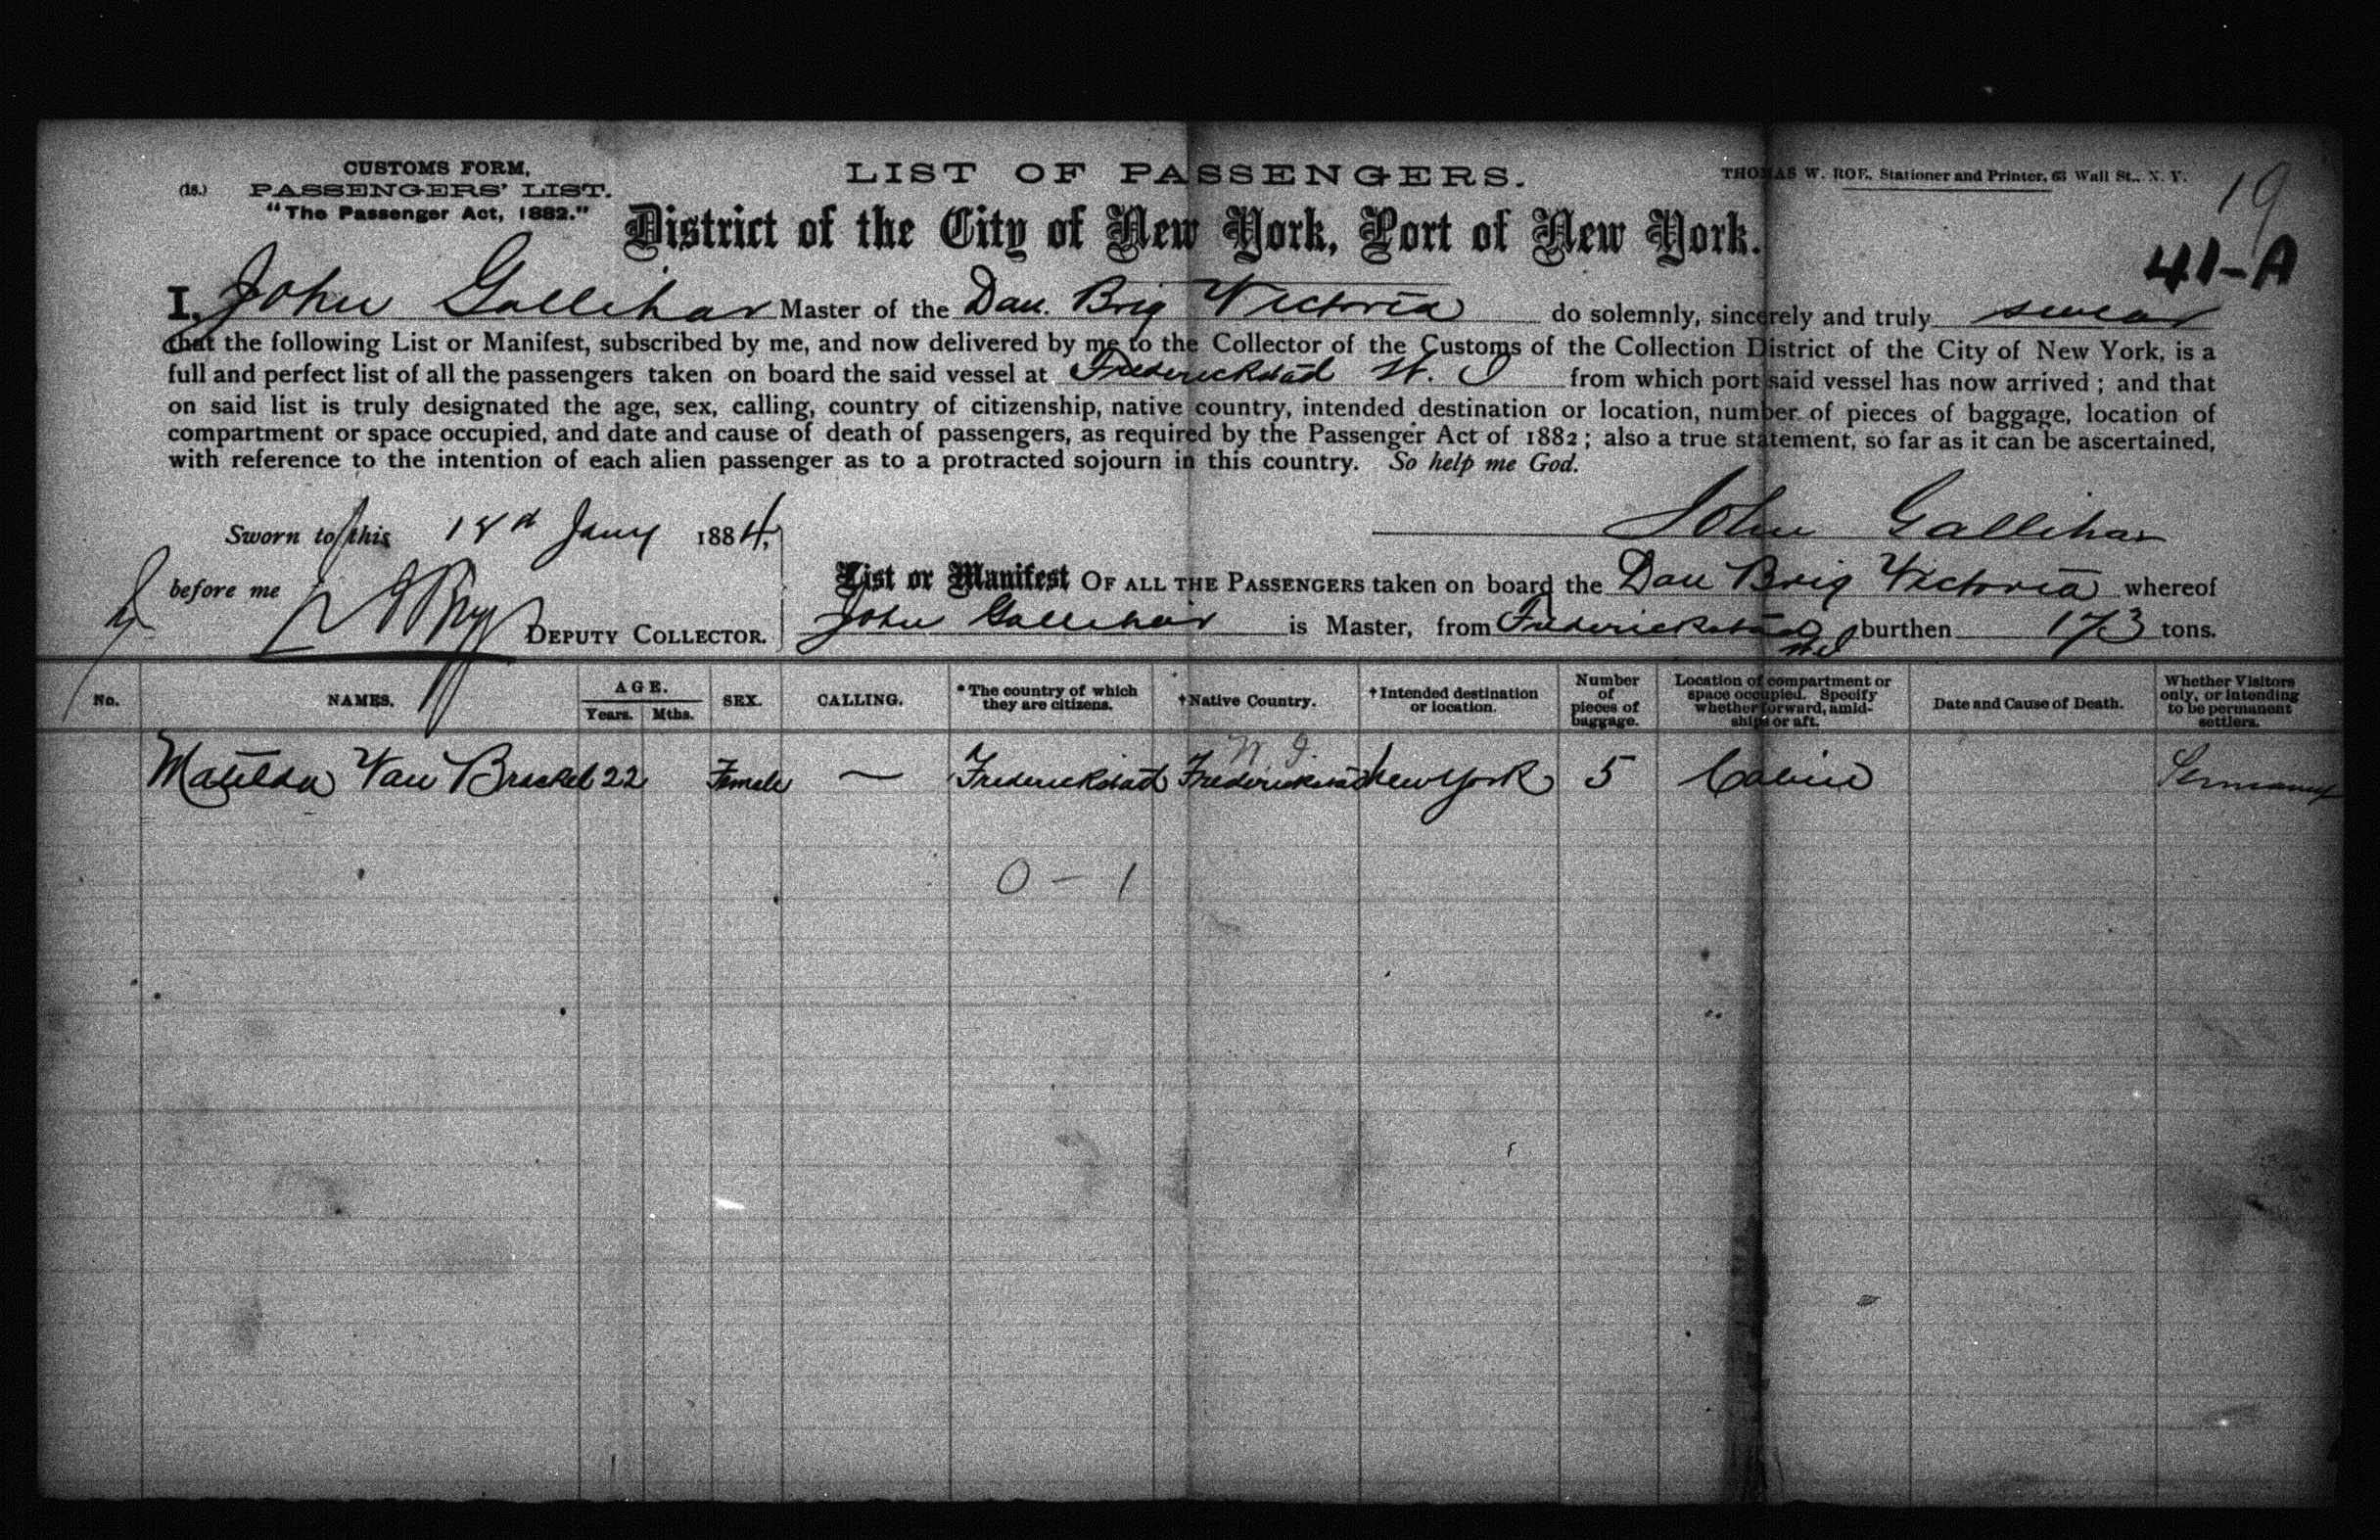 CUSTOMS FORM,
(18.) PASSENGERS' LIST.
"The Passenger Act, 1882."
LIST OF PASSENGERS.
THOMAS W. ROE, Stationer and Printer, 63 Wall St., N. Y.
19
District of the City of New York, Port of New York.
41-A
I, John Gallihar Master of the Dan. Brig Victoria do solemnly, sincerely and truly swear
that the following List or Manifest, subscribed by me, and now delivered by me to the Collector of the Customs of the Collection District of the City of New York, is a
full and perfect list of all the passengers taken on board the said vessel at Frederickstad from which port said vessel has now arrived; and that
on said list is truly designated the age, sex, calling, country of citizenship, native country, intended destination or location, number of pieces of baggage, location of
compartment or space occupied, and date and cause of death of passengers, as required by the Passenger Act of 1882; also a true statement, so far as it can be ascertained,
with reference to the intention of each alien passenger as to a protracted sojourn in this country. So help me God.
John Gallihar
Sworn to this 18 Jany 1884,
before me
DEPUTY COLLECTOR.
List or Manifest OF ALL THE PASSENGERS taken on board the Dan Brig Victoria whereof
John Gallihar is Master, from Frederickstad burthen 173 tons.
No. NAMES. AGE. Years. Mths. SEX. CALLING. *The country of which they are citizens. †Native Country. †Intended destination or location. Number of pieces of baggage. Location of compartment or space occupied. Specify whether forward, amidships or aft. Date and Cause of Death. Whether Visitors only, or intending to be permanent settlers.
W. I.
Matilda Van Brackel 22 Female — Frederickstad Frederickstad New York 5 Cabin
0 - 1